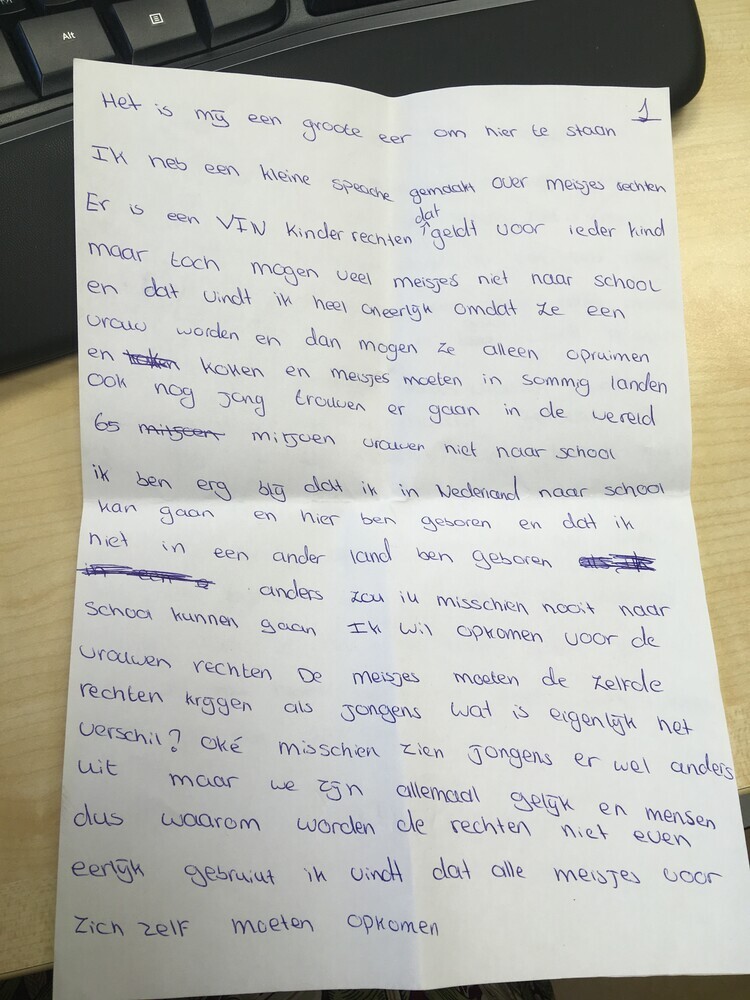 Alt
1
Het is mij een groote eer om hier te staan
Ik heb een kleine speache gemaakt over meisjes rechten
Er is een VIN kinder rechten dat geldt voor ieder kind
maar toch mogen veel meisjes niet naar school
en dat vindt ik heel oneerlijk omdat ze een
vrouw worden en dan mogen ze alleen opruimen
en koken en meisjes moeten in sommig landen
ook nog jong trouwen er gaan in de wereld
65 miljoen vrouwen niet naar school
ik ben erg blij dat ik in Nederland naar school
kan gaan en hier ben geboren en dat ik
niet in een ander land ben geboren
anders zou ik misschien nooit naar
school kunnen gaan Ik wil opkomen voor de
vrouwen rechten De meisjes moeten de zelfde
rechten krijgen als jongens wat is eigenlijk het
verschil? Oké misschien zien jongens er wel anders
uit maar we zijn allemaal gelijk en mensen
dus waarom worden de rechten niet even
eerlijk gebruikt ik vindt dat alle meisjes voor
zich zelf moeten opkomen